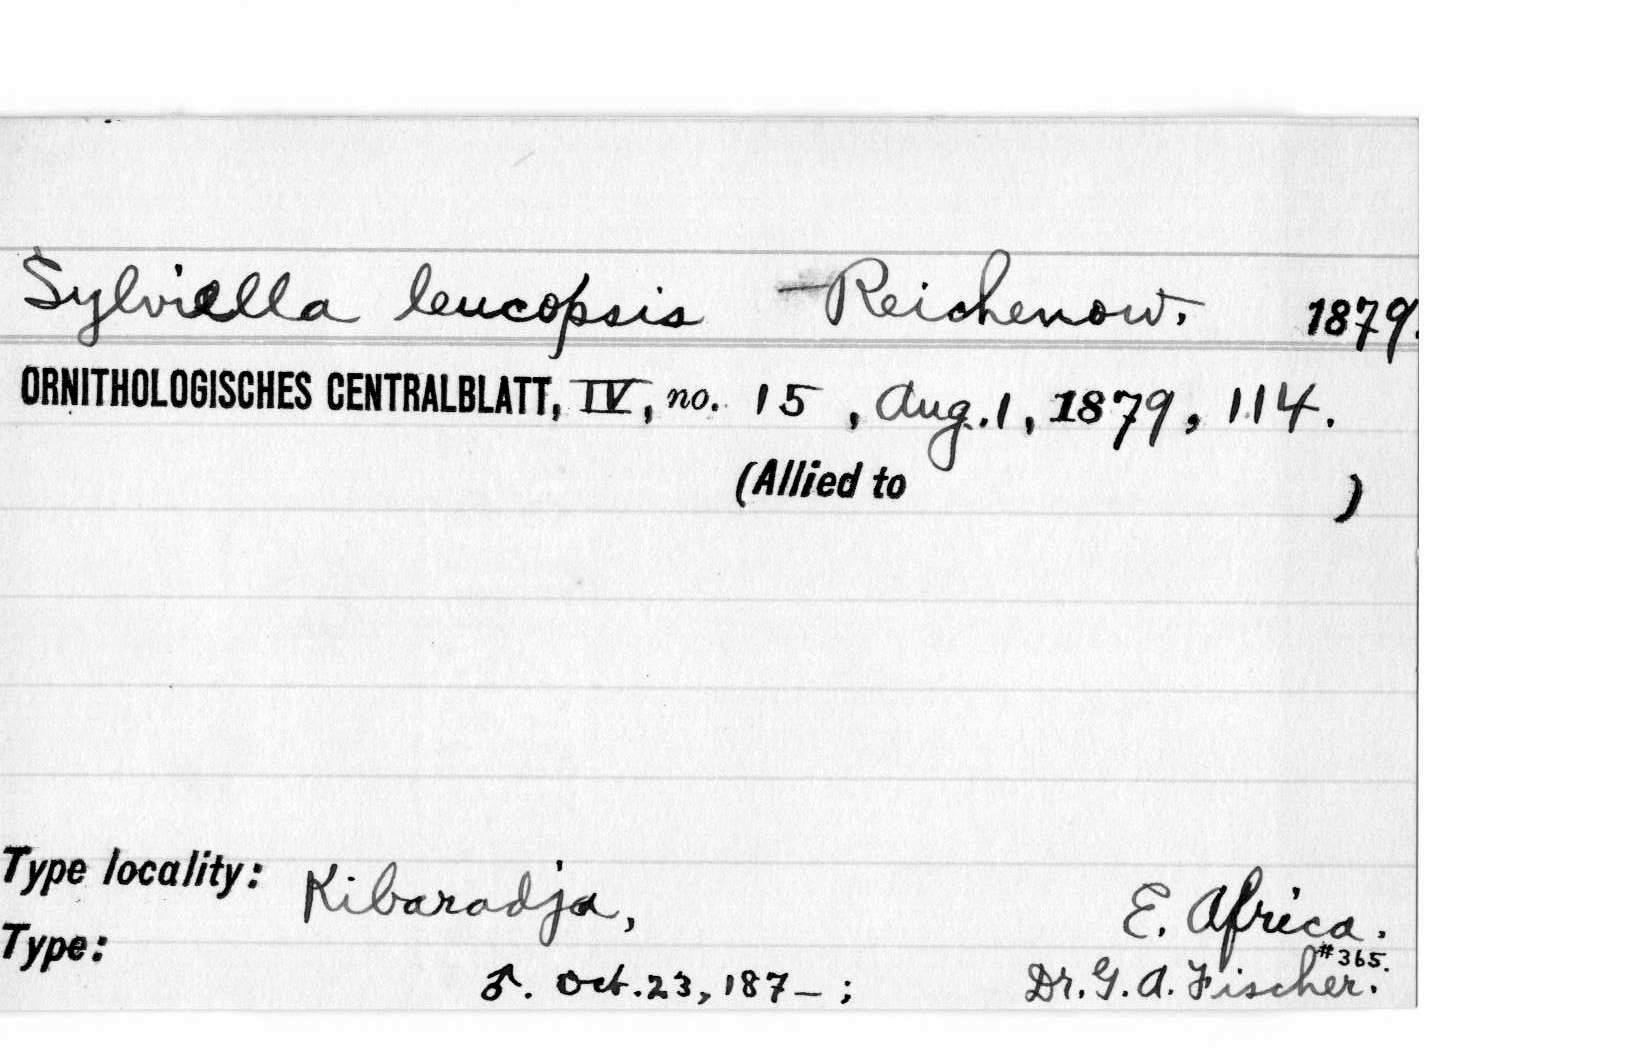 Sylviella leucopsis – Reichenow. 1879.
ORNITHOLOGISCHES CENTRALBLATT, IV, no. 15, Aug. 1, 1879, 114.
(Allied to )
Type locality: Kibaradja, E. Africa.
#365.
Type: ♂. Oct. 23, 187–; Dr. G. A. Fischer.